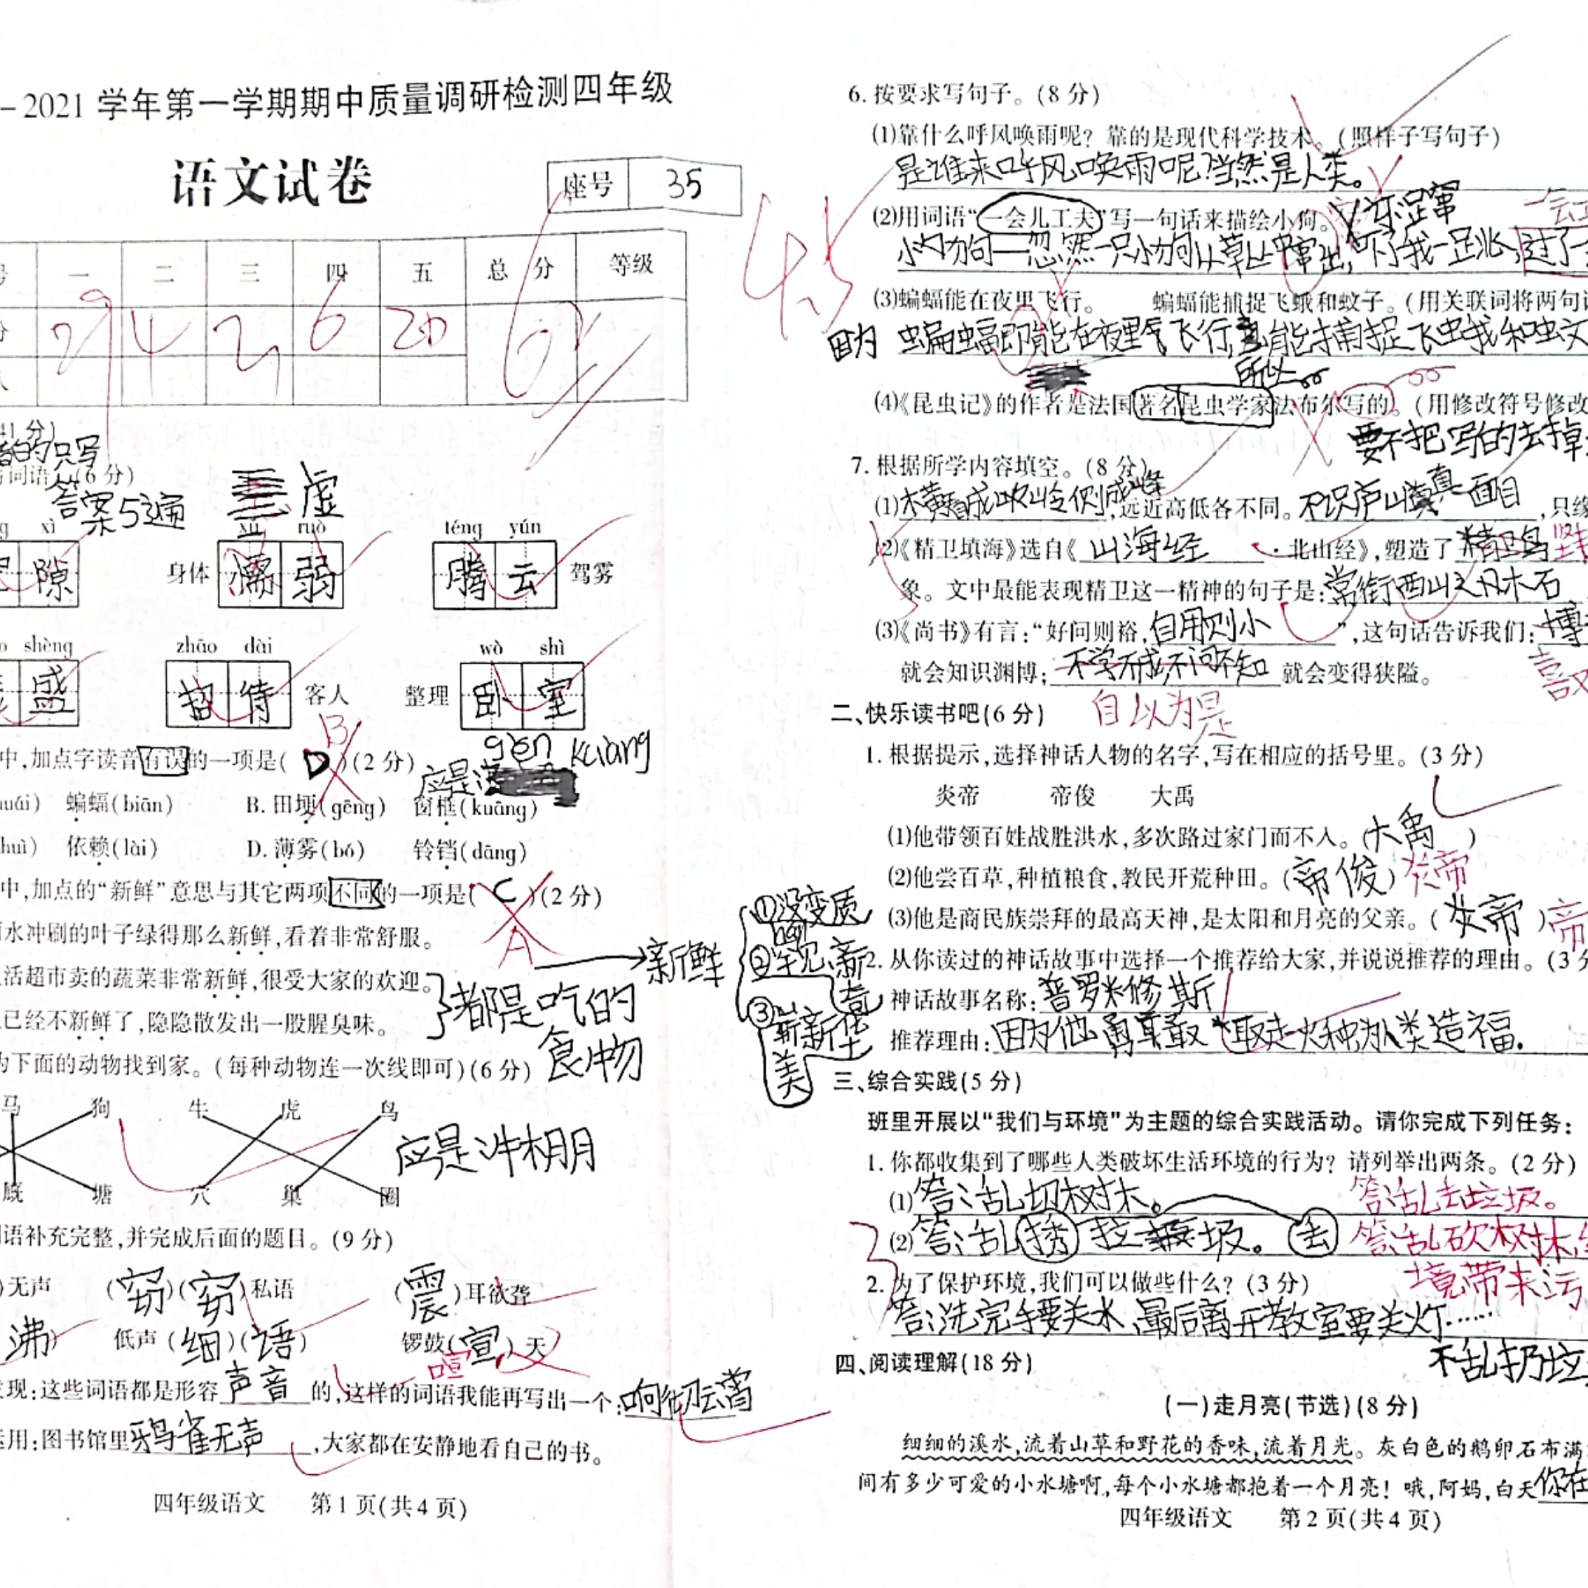 -2021 学年第一学期期中质量调研检测四年级
语文试卷
座号 35
一 二 三 四 五 总 分 等级
29 4 2 6 20
41 分)
的只写
词语。(6 分)
答案5通
虚
xì xū ruò téng yún
隙 身体 濡弱 腾云 驾雾
shèng zhāo dài wò shì
盛 招待 客人 整理 卧室
B
gěng kuàng
中,加点字读音有误的一项是( D )(2 分)
应是
蝙蝠(biān) B. 田埂(gēng) 窗框(kuāng)
依赖(lài) D. 薄雾(bó) 铃铛(dāng)
中,加点的“新鲜”意思与其它两项不同的一项是( C )(2 分)
A
水冲刷的叶子绿得那么新鲜,看着非常舒服。
活超市卖的蔬菜非常新鲜,很受大家的欢迎。
已经不新鲜了,隐隐散发出一股腥臭味。
都是吃的食物
新鲜
①没变质
②罕见新奇
③崭新华美
为下面的动物找到家。(每种动物连一次线即可)(6 分)
马 狗 牛 虎 鸟
厩 塘 穴 巢 圈
应是冲棚
语补充完整,并完成后面的题目。(9 分)
)无声 (窃)(窃)私语 (震)耳欲聋
沸) 低声(细)(语) 锣鼓(宣)天
喧
发现:这些词语都是形容声音的,这样的词语我能再写出一个:响彻云霄
运用:图书馆里鸦雀无声,大家都在安静地看自己的书。
四年级语文 第 1 页(共 4 页)
45
6. 按要求写句子。(8 分)
(1)靠什么呼风唤雨呢？靠的是现代科学技术。(照样子写句子)
是谁来呼风唤雨呢？当然是人类。
(2)用词语“一会儿工夫”写一句话来描绘小狗。
忽然一只小狗从草丛中窜出,吓我一跳,过了一
(3)蝙蝠能在夜里飞行。 蝙蝠能捕捉飞蛾和蚊子。(用关联词将两句
因为 蝙蝠即能在夜里飞行,
能捕捉飞蛾和蚊
所以
(4)《昆虫记》的作者是法国著名昆虫学家法布尔写的。(用修改符号修改
要不把写的去掉
7. 根据所学内容填空。(8 分)
(1)横看成岭侧成峰,远近高低各不同。不识庐山真面目,只缘
(2)《精卫填海》选自《山海经·北山经》,塑造了精卫鸟
象。文中最能表现精卫这一精神的句子是:常衔西山之木石
(3)《尚书》有言:“好问则裕,自用则小”,这句话告诉我们:博
就会知识渊博;不学不成不问不知 就会变得狭隘。
自以为是
二、快乐读书吧(6 分)
1. 根据提示,选择神话人物的名字,写在相应的括号里。(3 分)
炎帝 帝俊 大禹
(1)他带领百姓战胜洪水,多次路过家门而不入。(大禹)
(2)他尝百草,种植粮食,教民开荒种田。(帝俊)炎帝
(3)他是商民族崇拜的最高天神,是太阳和月亮的父亲。(炎帝)帝
2. 从你读过的神话故事中选择一个推荐给大家,并说说推荐的理由。(3 分
神话故事名称:普罗米修斯
推荐理由:因为他勇敢取走火种为人类造福.
三、综合实践(5 分)
班里开展以“我们与环境”为主题的综合实践活动。请你完成下列任务:
1. 你都收集到了哪些人类破坏生活环境的行为？请列举出两条。(2 分)
(1)答:乱切树木。 答:乱丢垃圾。
(2)答:乱 垃圾。 丢 答:乱砍树木
境带来污
2. 为了保护环境,我们可以做些什么？(3 分)
答:洗完手要关水,最后离开教室要关灯……
不乱扔垃
四、阅读理解(18 分)
(一)走月亮(节选)(8 分)
细细的溪水,流着山草和野花的香味,流着月光。灰白色的鹅卵石布满
间有多少可爱的小水塘啊,每个小水塘都抱着一个月亮！哦,阿妈,白天你在
四年级语文 第 2 页(共 4 页)